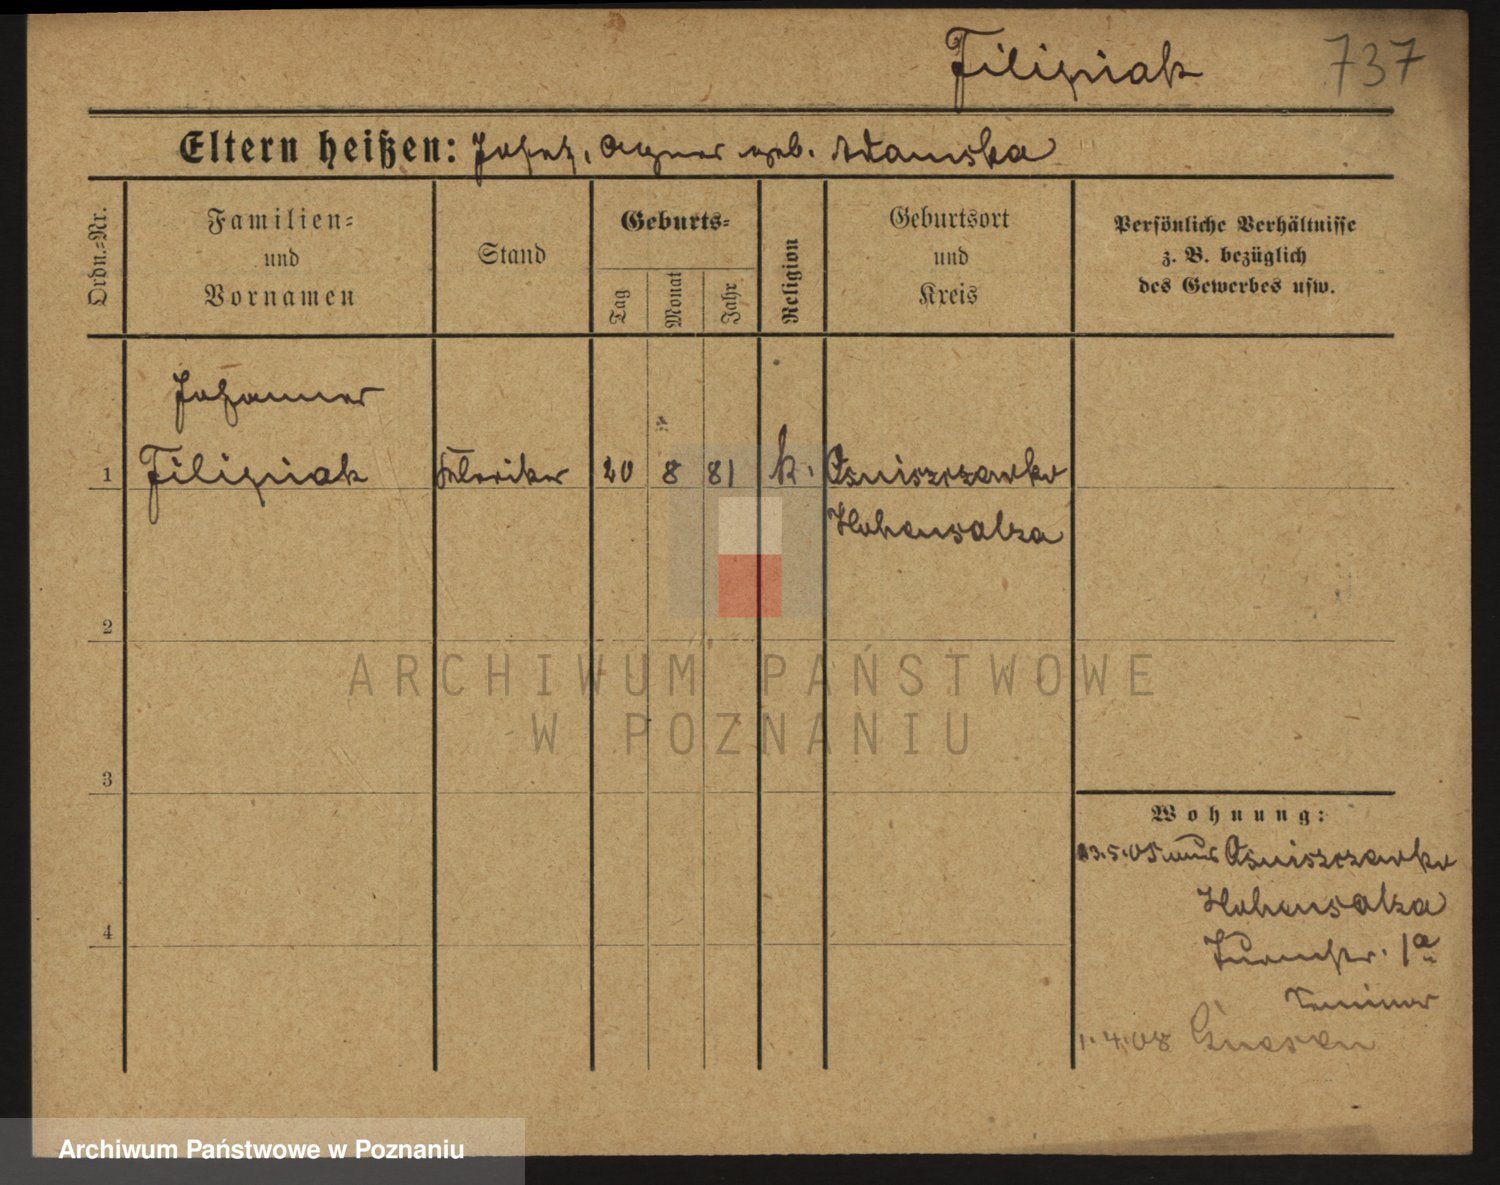 Filipiak 737
Eltern heißen: Josef, Agnes geb. Adamska
Ordn.=Nr.
Familien=
und
Vornamen
Stand
Geburts=
Tag
Monat
Jahr
Religion
Geburtsort
und
Kreis
Persönliche Verhältnisse
z. B. bezüglich
des Gewerbes usw.
Johannes
1 Filipiak Kleriker 20 8 81 k. Osniszczewko
Hohensalza
2
3
4
Wohnung:
23.5.05 aus Osniszczewko
Hohensalza
Turmstr. 1a
Seminar
1.4.08 Gnesen
ARCHIWUM PAŃSTWOWE
W POZNANIU
Archiwum Państwowe w Poznaniu